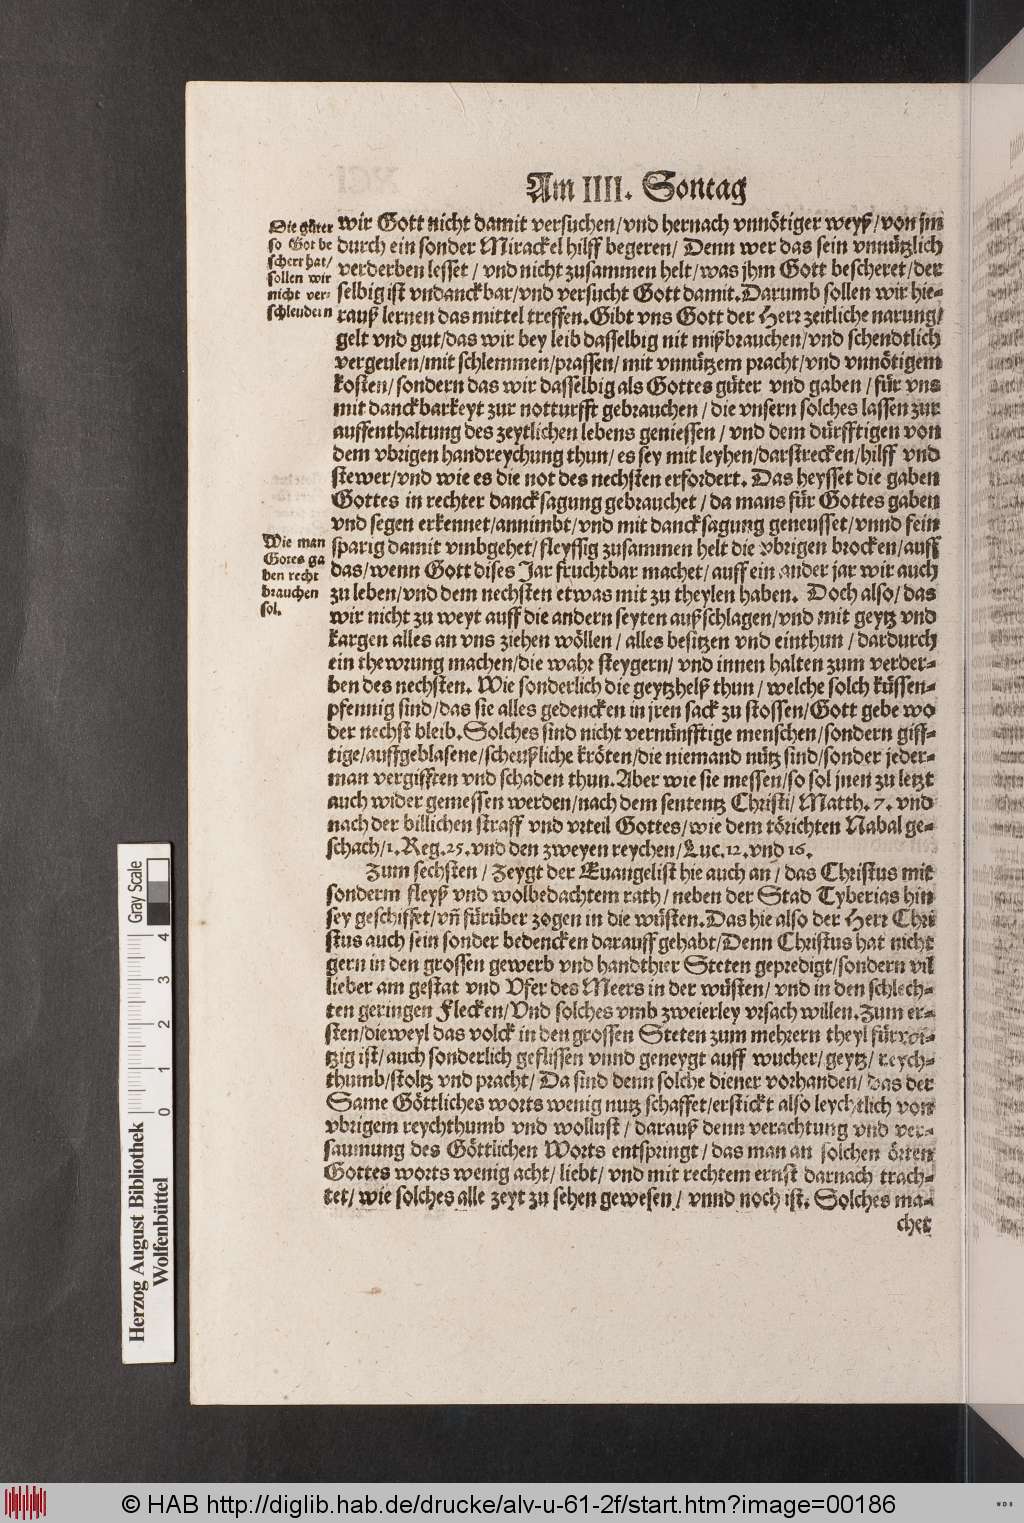 Am IIII. Sontag
Die güter
so Got be
schert hat/
sollen wir
nicht ver-
schleudern
wir Gott nicht damit versuchen/vnd hernach vnnötiger weyß/von jm
durch ein sonder Mirackel hilff begeren/ Denn wer das sein vnnützlich
verderben lesset / vnd nicht zusammen helt/was jhm Gott bescheret/der
selbig ist vndanckbar/vnd versucht Gott damit. Darumb sollen wir hie-
rauß lernen das mittel treffen. Gibt vns Gott der Herr zeitliche narung/
gelt vnd gut/das wir bey leib dasselbig nit mißbrauchen/vnd schendtlich
vergeulen/mit schlemmen/prassen/ mit vnnützem pracht/vnd vnnötigem
kosten/sondern das wir dasselbig als Gottes güter vnd gaben / für vns
mit danckbarkeyt zur notturfft gebrauchen / die vnsern solches lassen zur
auffenthaltung des zeytlichen lebens geniessen / vnd dem dürfftigen von
dem vbrigen handreychung thun/ es sey mit leyhen/darstrecken/hilff vnd
stewer/vnd wie es die not des nechsten erfordert. Das heysset die gaben
Gottes in rechter dancksagung gebrauchet / da mans für Gottes gaben
vnd segen erkennet/annimbt/vnd mit dancksagung geneusset/vnnd fein
Wie man
Gotes ga
ben recht
brauchen
sol.
sparig damit vmbgehet/fleyssig zusammen helt die vbrigen brocken/auff
das/wenn Gott dises Jar fruchtbar machet/ auff ein ander jar wir auch
zu leben/vnd dem nechsten etwas mit zu theylen haben. Doch also/das
wir nicht zu weyt auff die andern seyten außschlagen/vnd mit geytz vnd
kargen alles an vns ziehen wöllen / alles besitzen vnd einthun / dardurch
ein thewrung machen/die wahr steygern/ vnd innen halten zum verder-
ben des nechsten. Wie sonderlich die geytzhelß thun / welche solch küssen-
pfennig sind/das sie alles gedencken in jren sack zu stossen/Gott gebe wo
der nechst bleib. Solches sind nicht vernünfftige menschen/sondern giff-
tige/auffgeblasene/scheußliche kröten/die niemand nütz sind/sonder jeder-
man vergifften vnd schaden thun. Aber wie sie messen/so sol jnen zu letzt
auch wider gemessen werden/nach dem sententz Christi/ Matth. 7. vnd
nach der billichen straff vnd vrteil Gottes/wie dem törichten Nabal ge-
schach/1. Reg. 25. vnd den zweyen reychen/Luc. 12. vnd 16.
Zum sechsten / Zeygt der Euangelist hie auch an / das Christus mit
sonderm fleyß vnd wolbedachtem rath / neben der Stad Tyberias hin
sey geschiffet/vñ fürüber zogen in die wüsten. Das hie also der Herr Chri
stus auch sein sonder bedencken darauff gehabt/Denn Christus hat nicht
gern in den grossen gewerb vnd handthier Steten gepredigt/sondern vil
lieber am gestat vnd Vfer des Meers in der wüsten/ vnd in den schlech-
ten geringen Flecken/Vnd solches vmb zweierley vrsach willen. Zum er-
sten/dieweyl das volck in den grossen Steten zum mehrern theyl fürwi-
tzig ist/auch sonderlich geflissen vnnd geneygt auff wucher/geytz/ reych-
thumb/stoltz vnd pracht/ Da sind denn solche diener vorhanden/ das der
Same Göttliches worts wenig nutz schaffet/erstickt also leychtlich von
vbrigem reychthumb vnd wollust / darauß denn verachtung vnd ver-
saumung des Göttlichen Worts entspringt / das man an solchen örten
Gottes worts wenig acht/ liebt/ vnd mit rechtem ernst darnach trach-
tet/ wie solches alle zeyt zu sehen gewesen / vnnd noch ist. Solches ma-
chet
Gray Scale
0 1 2 3 4
Herzog August Bibliothek
Wolfenbüttel
© HAB http://diglib.hab.de/drucke/alv-u-61-2f/start.htm?image=00186